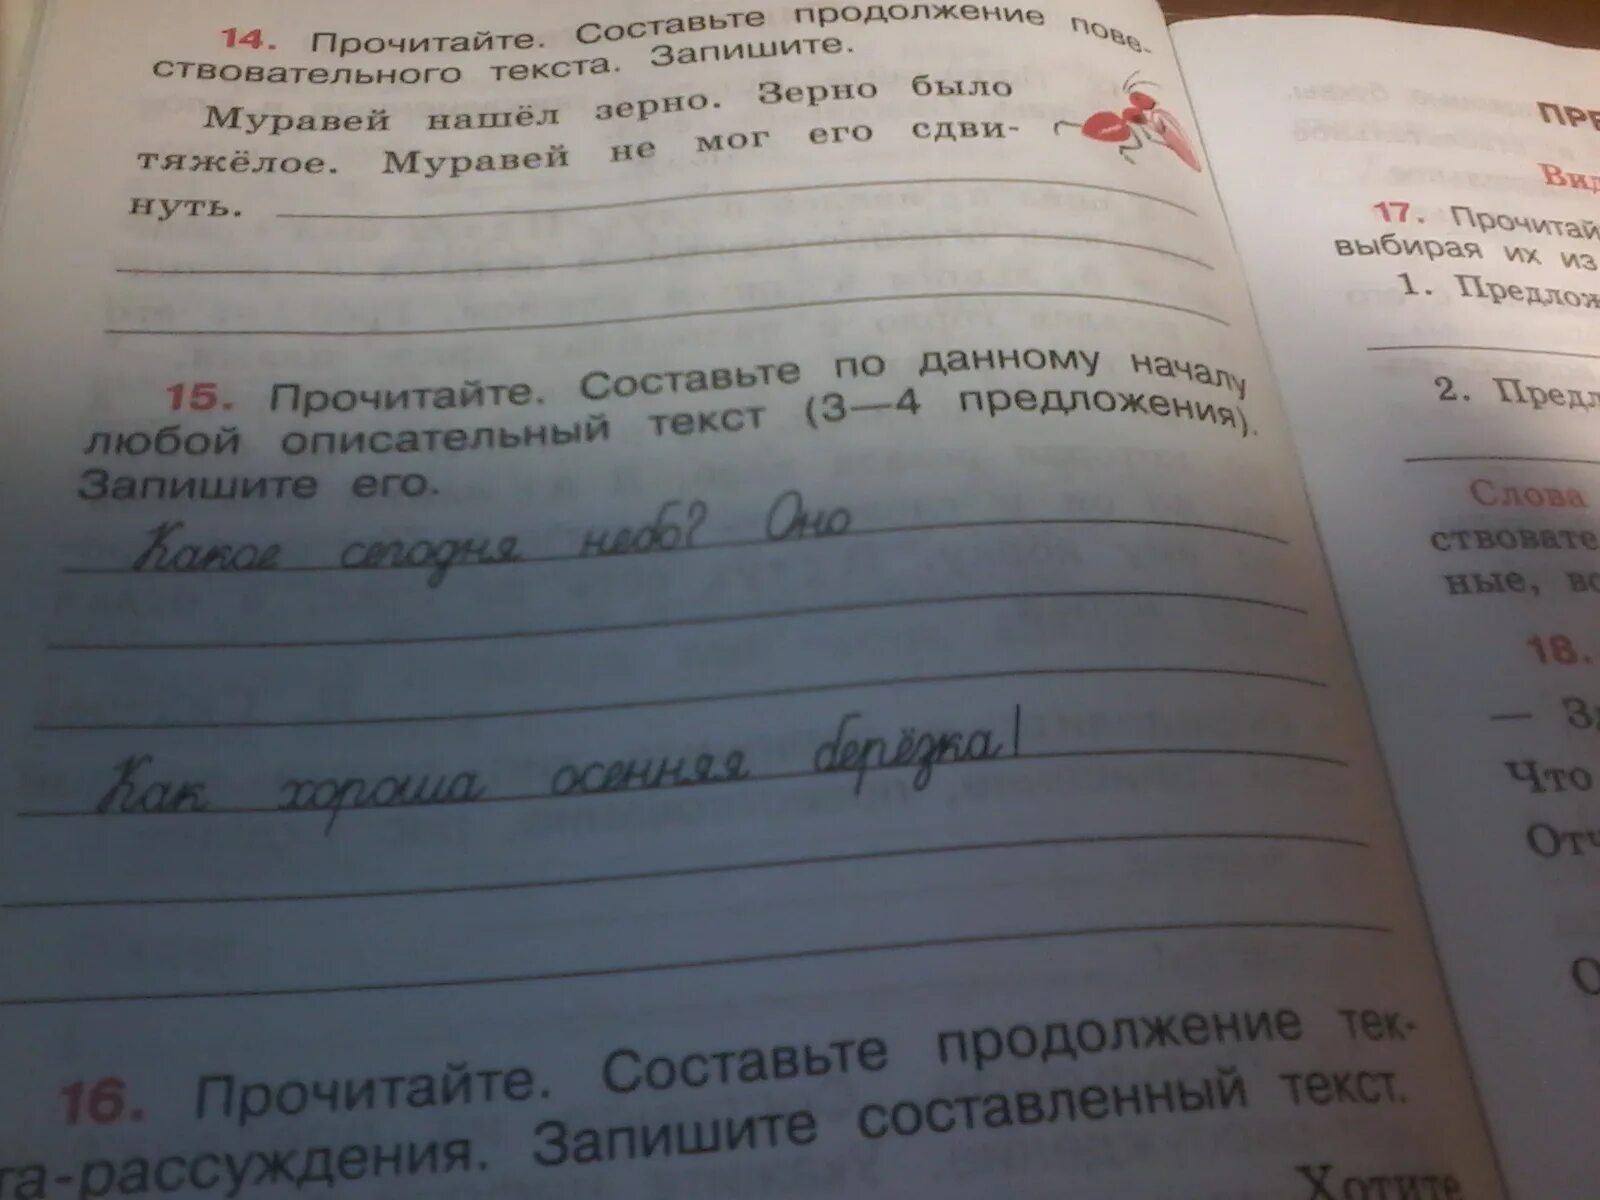 14. Прочитайте. Составьте продолжение пове-
ствовательного текста. Запишите.
Муравей нашёл зерно. Зерно было
тяжёлое. Муравей не мог его сдви-
нуть.
15. Прочитайте. Составьте по данному началу
любой описательный текст (3—4 предложения).
Запишите его.
Какое сегодня небо? Оно
Как хороша осенняя берёзка!
16. Прочитайте. Составьте продолжение тек-
та-рассуждения. Запишите составленный текст.
Хотите
ПРЕ
Вид
17. Прочитай
выбирая их из
1. Предлож
2. Предл
Слова
ствовате
ные, во
18.
— Зд
Что
Отч
О